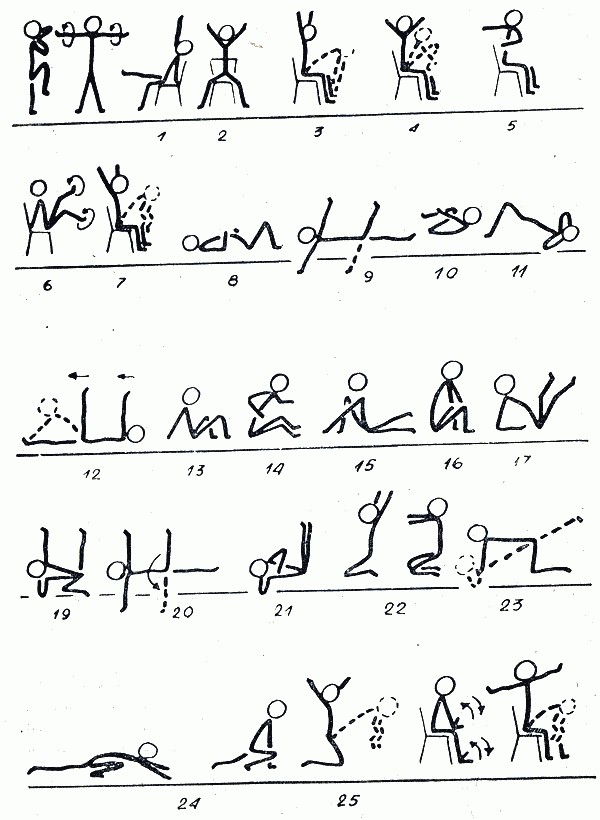 1 2 3 4 5
6 7 8 9 10 11
12 13 14 15 16 17
19 20 21 22 23
24 25